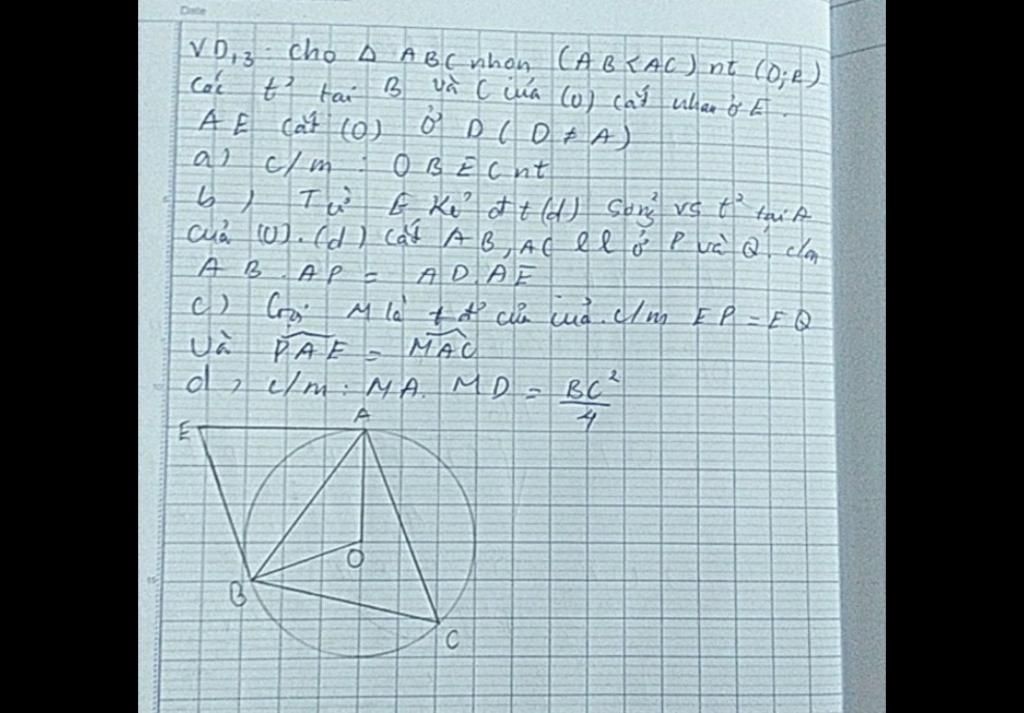 Date
VD13: Cho Δ ABC nhọn (AB<AC) nt (O;R)
Các t² tại B và C của (O) cắt nhau ở E.
AE cắt (O) ở D (D ≠ A)
a) c/m : OBEC nt
b) Từ E kẻ đt (d) song² vs t² tại A
của (O). (d) cắt AB, AC ll ở P và Q. c/m
AB.AP = AD.AE
c) Gọi M là t đ² của của. c/m EP = EQ
Và PAE = MAC
d, c/m: MA. MD = BC²/4
A
E
O
B
C